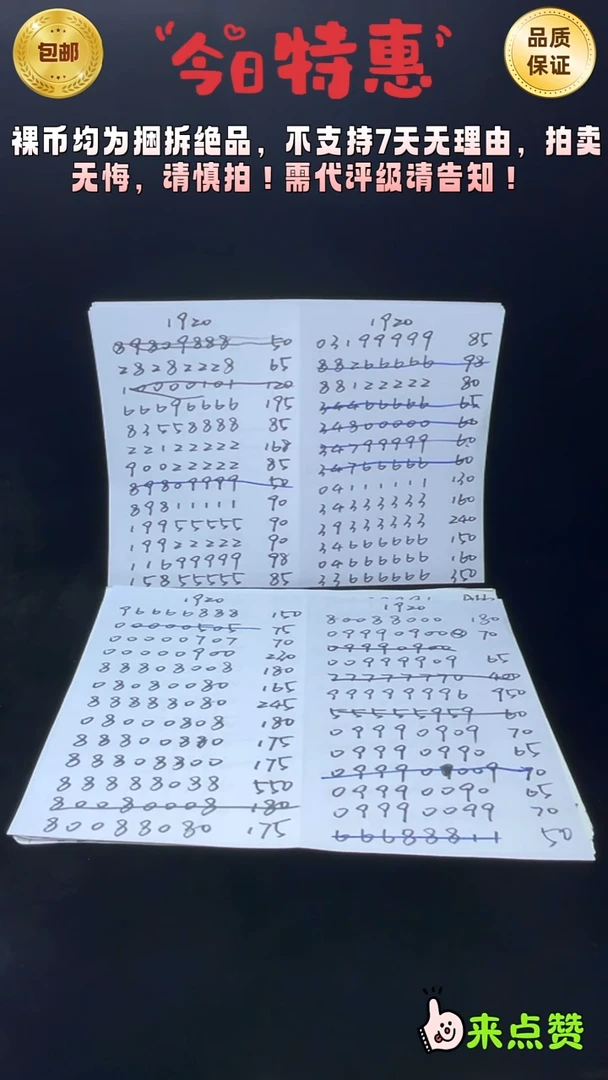 包邮
今日特惠
品质
保证
裸币均为捆拆绝品，不支持7天无理由，拍卖
无悔，请慎拍！需代评级请告知！
1920
89809888 50
28282228 65
10000101 120
66696666 195
83558888 85
22122222 168
90022222 85
89809999 50
89811111 90
19955555 90
19922222 90
11699999 98
15855555 85
1920
03199999 85
88266666 98
88122222 80
34466666 65
34800000 60
34799999 60
34766666 60
04111111 130
34333333 160
39333333 240
34666666 150
04666666 160
33666666 350
1920
96666888 150
00000505 75
00000707 70
00000900 230
88808008 180
08080080 165
88888080 245
08000808 180
88800880 175
88808800 175
88888038 550
80080008 180
80088080 175
1920
80088000 180
09990900 70
09990900
00999909 65
77777770 400
99999996 950
55555959 60
09990909 70
09990990 65
09990009 70
09990090 65
09990099 70
66688811 50
来点赞